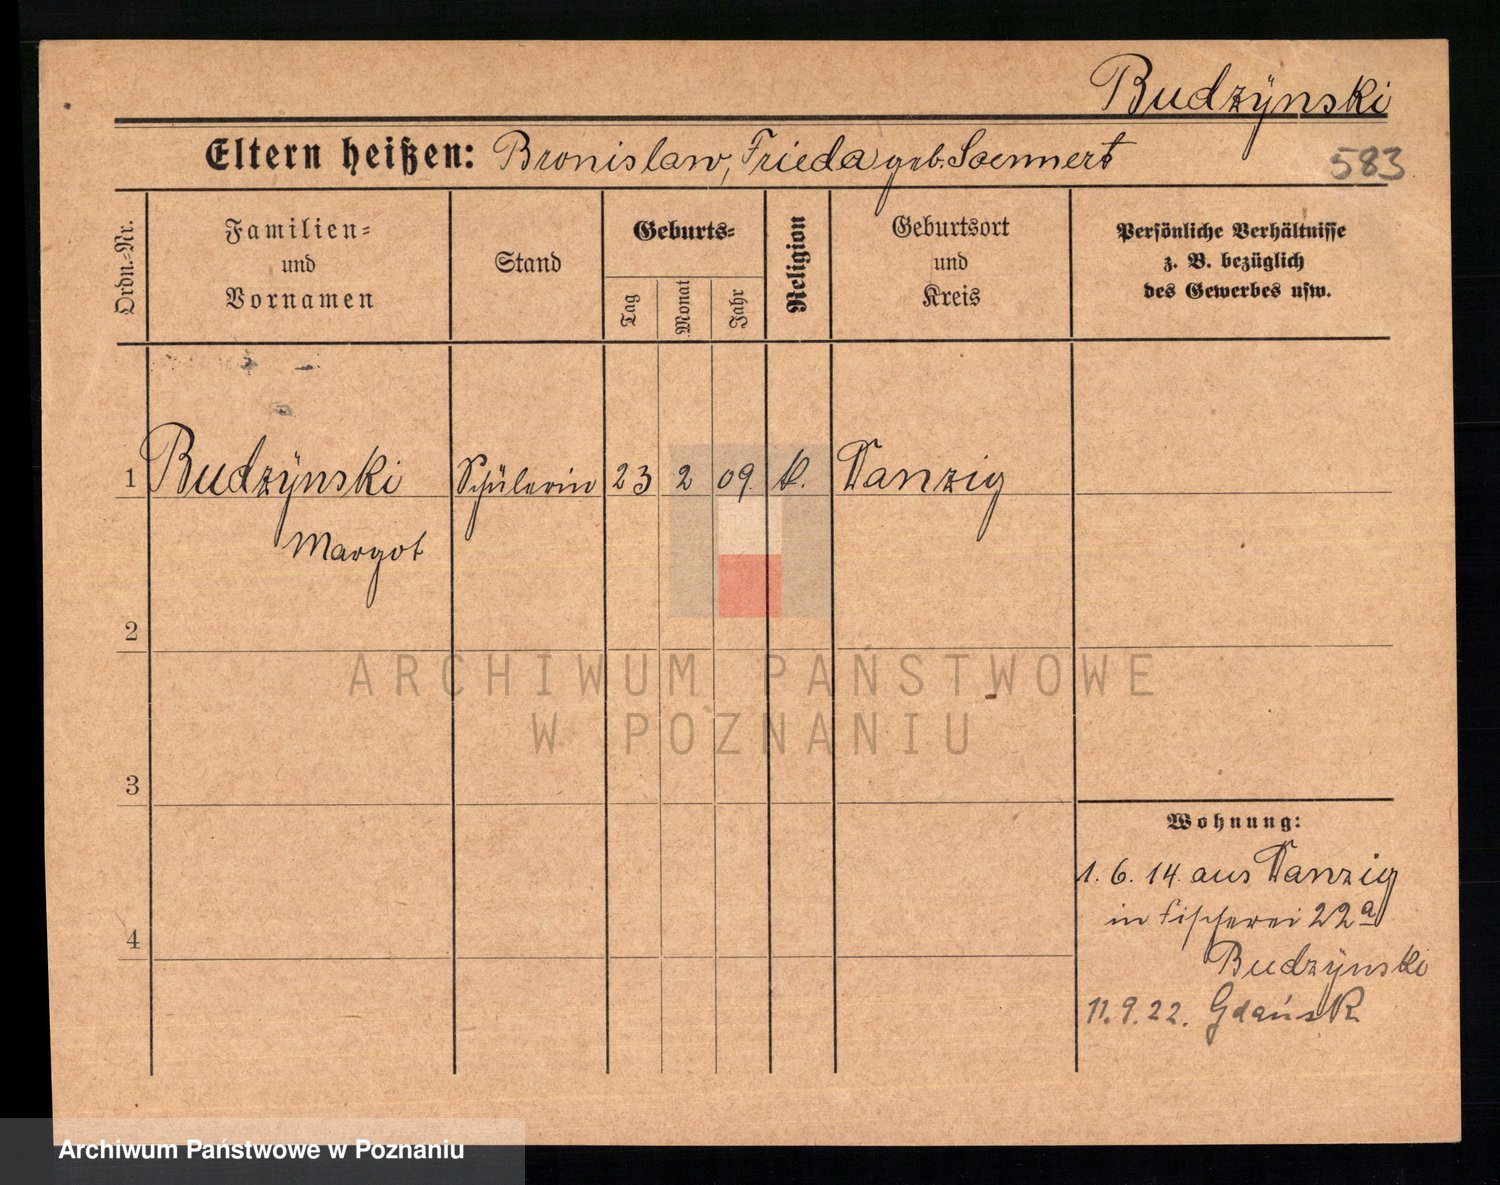 Budzÿnski
Eltern heißen: Bronislaw, Frieda geb.
583
Ordn.-Nr.
Familien-
und
Vornamen
Stand
Geburts-
Tag
Monat
Jahr
Religion
Geburtsort
und
Kreis
Persönliche Verhältnisse
z. B. bezüglich
des Gewerbes usw.
1 Budzÿnski Schülerin 23 2 09. k. Danzig
Margot
2
3
4
Wohnung:
1. 6. 14. aus Danzig
in Fischerei 22a
Budzÿnski
11. 9. 22. Gdańsk
ARCHIWUM PAŃSTWOWE
W POZNANIU
Archiwum Państwowe w Poznaniu